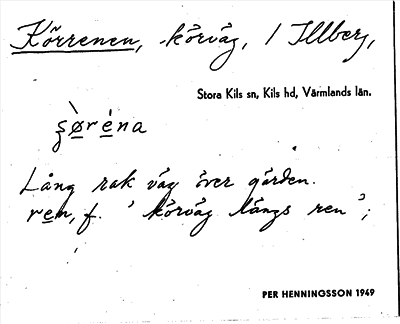 Körrenen, körväg, i Illberg,
Stora Kils sn, Kils hd, Värmlands län.
şø̀réna
Lång rak väg över gården.
ren, f. 'körväg längs ren';
PER HENNINGSSON 1949